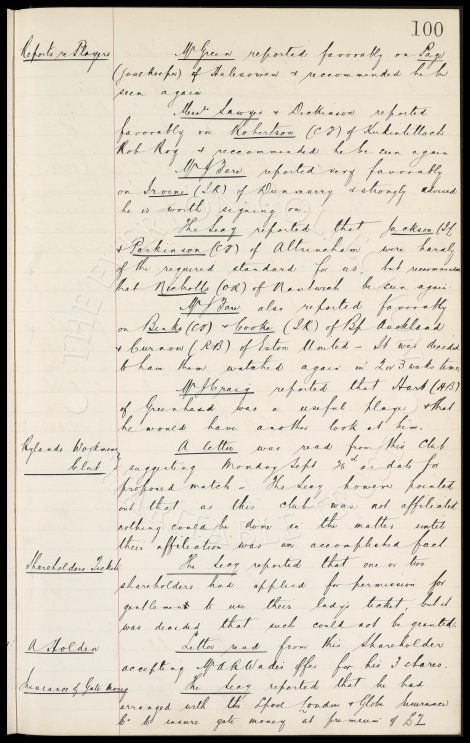 100
Reports re Players
Mr Green reported favorably on Page
(Goalkeeper) of Halesowen & reccommended he be
seen again
Messrs Sawyer & Dickinson reported
favorably on Robertson (CF) of Kirkintilloch
Rob Roy & reccommended he be seen again
Mr J Fare reported very favorably
on Irvine (IR) of Dunmurry & strongly advised
he is worth signing on.
The Secy reported that Jackson (IL
& Parkinson (CF) of Altrincham were hardly
of the required standard for us, but recommended
that Nicholls (OR) of Nantwich be seen again
Mr J Fare also reported favorably
on Binks (CF) & Cooke (IR) of Bp Auckland
& Curnow (RB) of Eston United - It was decided
to have them watched again in 2 or 3 weeks time
Mr J Craig reported that Hart (HB)
of Greenhead was a useful player & that
he would have another look at him.
Rylands Workmens
Club
A letter was read from this Club
suggesting Monday Sept as date for
proposed match - The Secy however pointed
out that as this club was not affiliated
nothing could be done in the matter until
their affiliation was an accomplished fact
Shareholders Tickets
The Secy reported that one or two
shareholders had applied for permission for
gentlemen to use their ladys ticket, but it
was decided that such could not be granted.
A Holden
Letter read from this Shareholder
accepting Mr A R Wades offer for his 3 shares.
Insurance of Gate Money
The Secy reported that he had
arranged with the Lpool London & Globe Insurance
Co to insure gate money at premium of